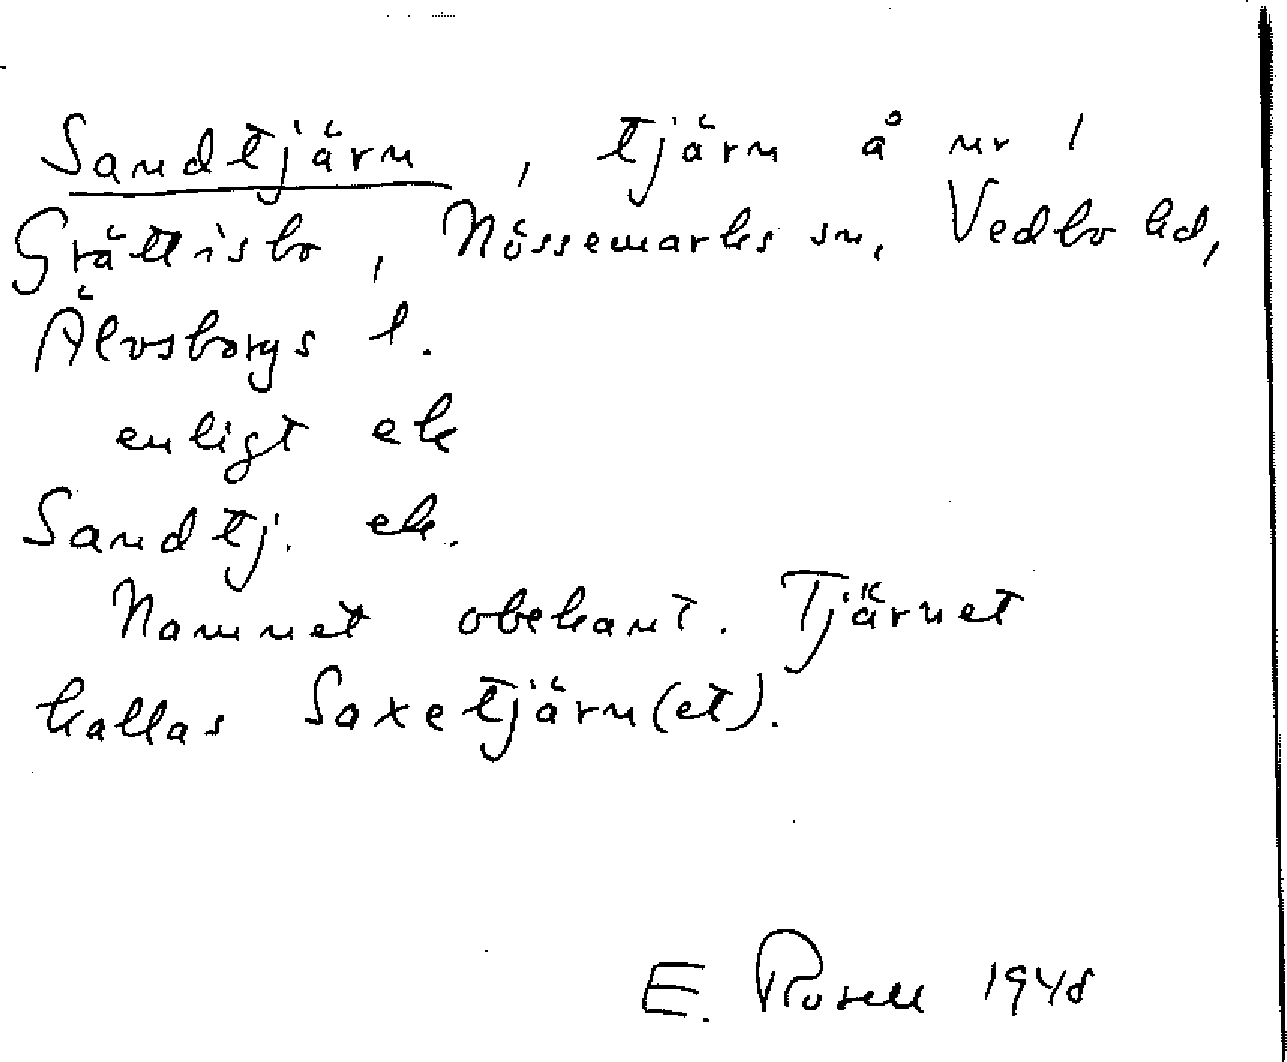 Sandtjärn, tjärn å nr 1
Grättisbo, Nössemarks sn, Vedbo hd,
Älvsborgs l.
enligt ek
Sandtj. ek.
Namnet obekant. Tjärnet
kallas Saxetjärn(et).
E. Rosell 1948